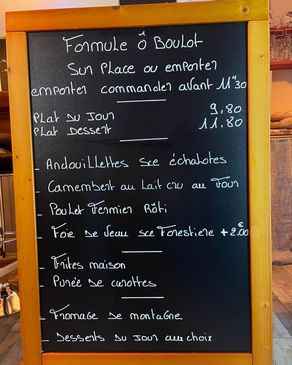 Formule Ô Boulot
Sur Place ou emporter
emporter commander avant 11H30
Plat du Jour 9,80
Plat Dessert 11,80
- Andouillettes sce échalotes
- Camembert au lait cru au four
- Poulet Fermier Rôti
- Foie de Veau sce Forestiere + 2.00€
- Frites maison
- Purée de carottes
- Fromage de montagne
- Desserts du Jour au choix